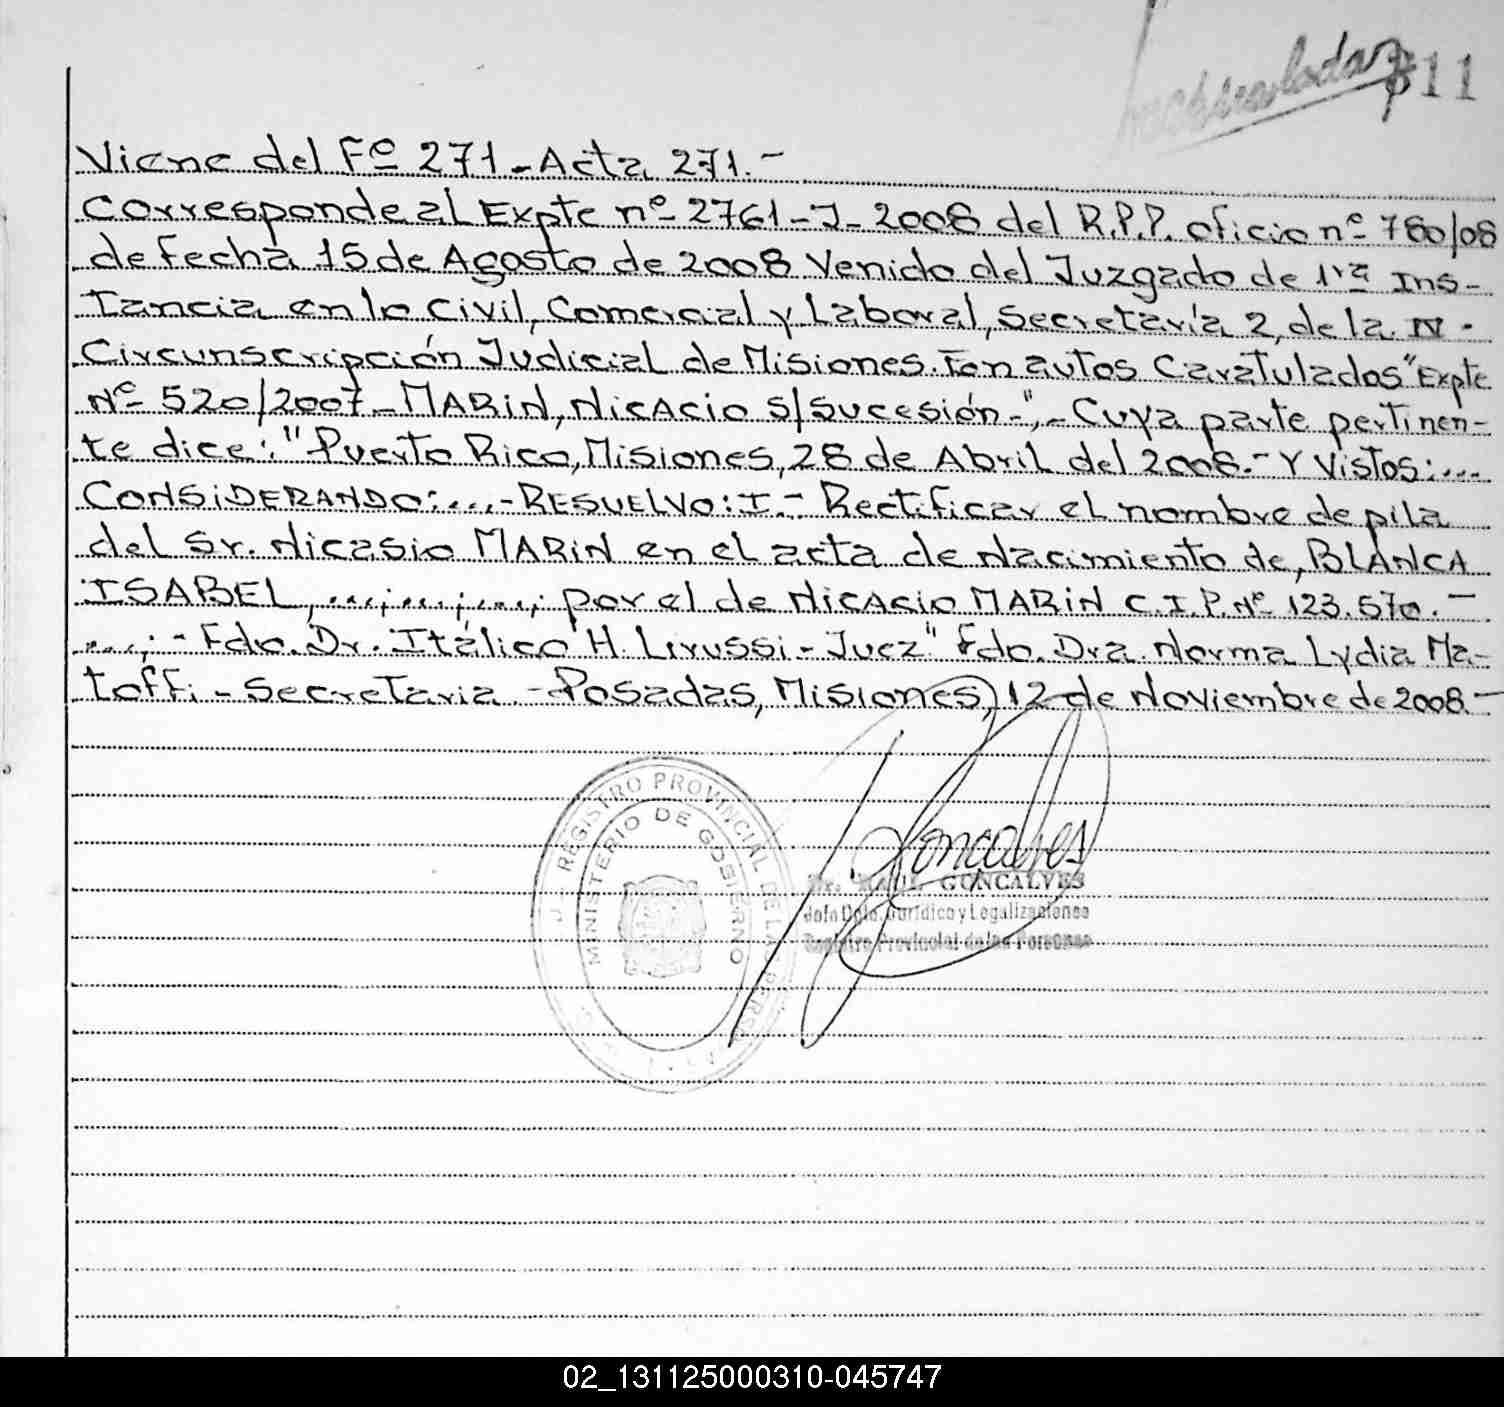 711
Viene del Fº 271 - Acta 271.-
Corresponde al Expte nº 2761-J-2008 del R.P.P. oficio nº 780/08
de fecha 15 de Agosto de 2008 Venido del Juzgado de 1ra Ins-
tancia en lo Civil, Comercial y Laboral, Secretaría 2, de la IV
Circunscripción Judicial de Misiones. En autos Caratulados "Expte
Nº 520/2007 - MARIN, NICACIO S/Sucesión-", - Cuya parte pertinen-
te dice: "Puerto Rico, Misiones, 28 de Abril del 2008.- Y Vistos:...
CONSIDERANDO:...- RESUELVO: I.- Rectificar el nombre de pila
del Sr. Nicasio MARIN en el acta de Nacimiento de, BLANCA
ISABEL, ...;...;...; por el de NICACIO MARIN C.I.P. Nº 123.570.-
...;- Fdo. Dr. Itálico H. Lirussi - Juez" Fdo. Dra. Norma Lydia Ma-
toffi - Secretaria - Posadas, Misiones, 12 de Noviembre de 2008.-
REGISTRO PROVINCIAL DE LAS PERSONAS
MINISTERIO DE GOBIERNO
Goncalves
GONCALVES
Jefe Dpto. Jurídico y Legalizaciones
Registro Provincial de las Personas
02_131125000310-045747